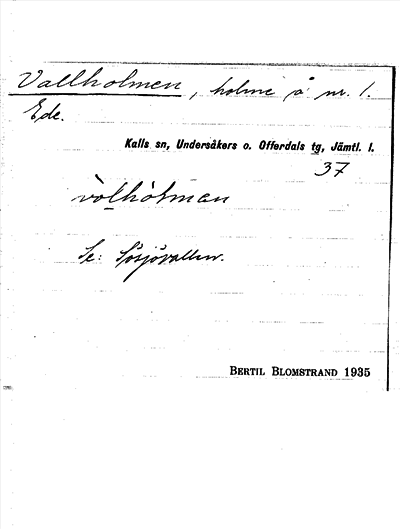 Vallholmen, holme å nr. 1.
Ede.
Kalls sn, Undersåkers o. Offerdals tg, Jämtl. l.
37
vòlhòlman
Se: Sösjövallen.
BERTIL BLOMSTRAND 1935